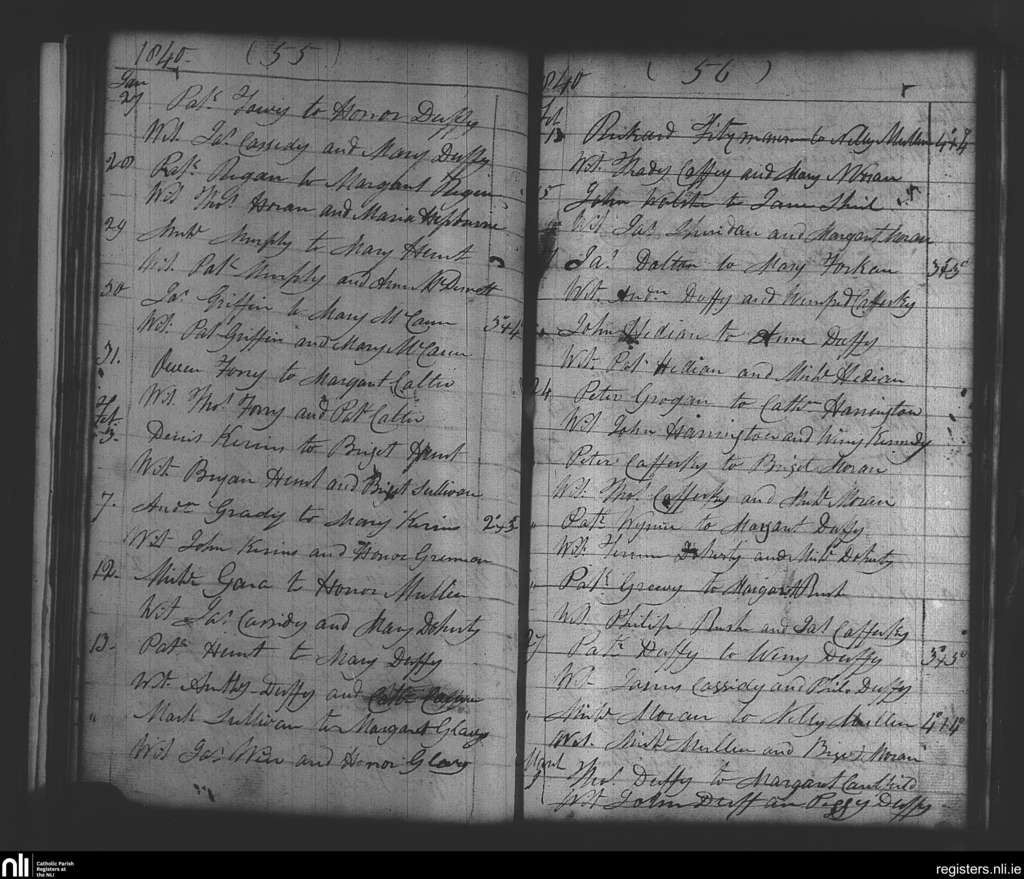 1840 (55)
Jan
27 Patk Towy to Honor Duffy
Wit. Jas Cassidy and Mary Duffy
28 Patk Regan to Margaret Regan
Wit Thos Horan and Maria Hepburne
29 Michl Murphy to Mary Hunt
Wit. Patk Murphy and Ann McDermott
30 Jas Griffin to Mary McCann 3°+4°
Wit. Pat Griffin and Mary McCann
31. Owen Forry to Margaret Caltie
Wit. Thos Forry and Pat Caltie
Feb.
3. Denis Kerins to Briget Hunt
Wit Bryan Hunt and Briget Sullivan
7. Andw Grady to Mary Kerins 2°+3°
Wit John Kerins and Honor
12. Michl Gara to Honor Mullen
Wit Jas Cassidy and Mary Doherty
13. Patk Hunt to Mary Duffy
Wit. Anthy Duffy and Cathn
" Mark Sullivan to Margaret Glavy
Wit Jas Weir and Honor Glavy
1840 (56)
Feb.
13 Richard Fitzmaurice to Nelly Mullen 4°+4°
Wit Thady Caffey and Mary Noran
John Walsh to Jane Shiel
Wit Jas Sheridan and Margaret Moran
Jas Dalton to Mary Forkan 3°+3°
Wit. Andw Duffy and Winifred Cafferky
John Hedian to Anne Duffy
Wit. Pat Hedian and Michl Hedian
24 Peter Grogan to Cathn Harrington
Wit John Harrington and Winny Kennedy
Peter Cafferky to Briget Moran
Wit. Thos Cafferky and Michl Moran
" Patk Wynne to Margaret Duffy
Wit. Doherty and Michl Doherty
" Patk Greevy to Margaret Rush
Wit Philip Rush and Pat Cafferky
27 Patk Duffy to Winny Duffy 3°+3°
Wit James Cassidy and Philo Duffy
" Michl Moran to Nelly Mullen 4°+4°
Wit. Michl Mullen and Briget Moran
March
Thos Duffy to Margaret Caulfield
Wit John Duff an Peggy Duffy
nli
Catholic Parish
Registers at
the NLI
registers.nli.ie